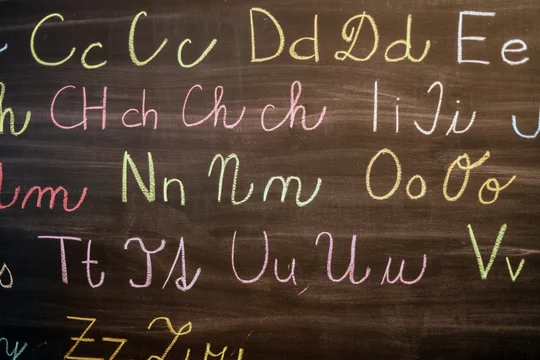 Cc Cc Dd Dd Ee
h CH ch Ch ch Ii Ii
m Nn Nn Oo Oo
Tt Tt Uu Uu Vv
y Zz Zz